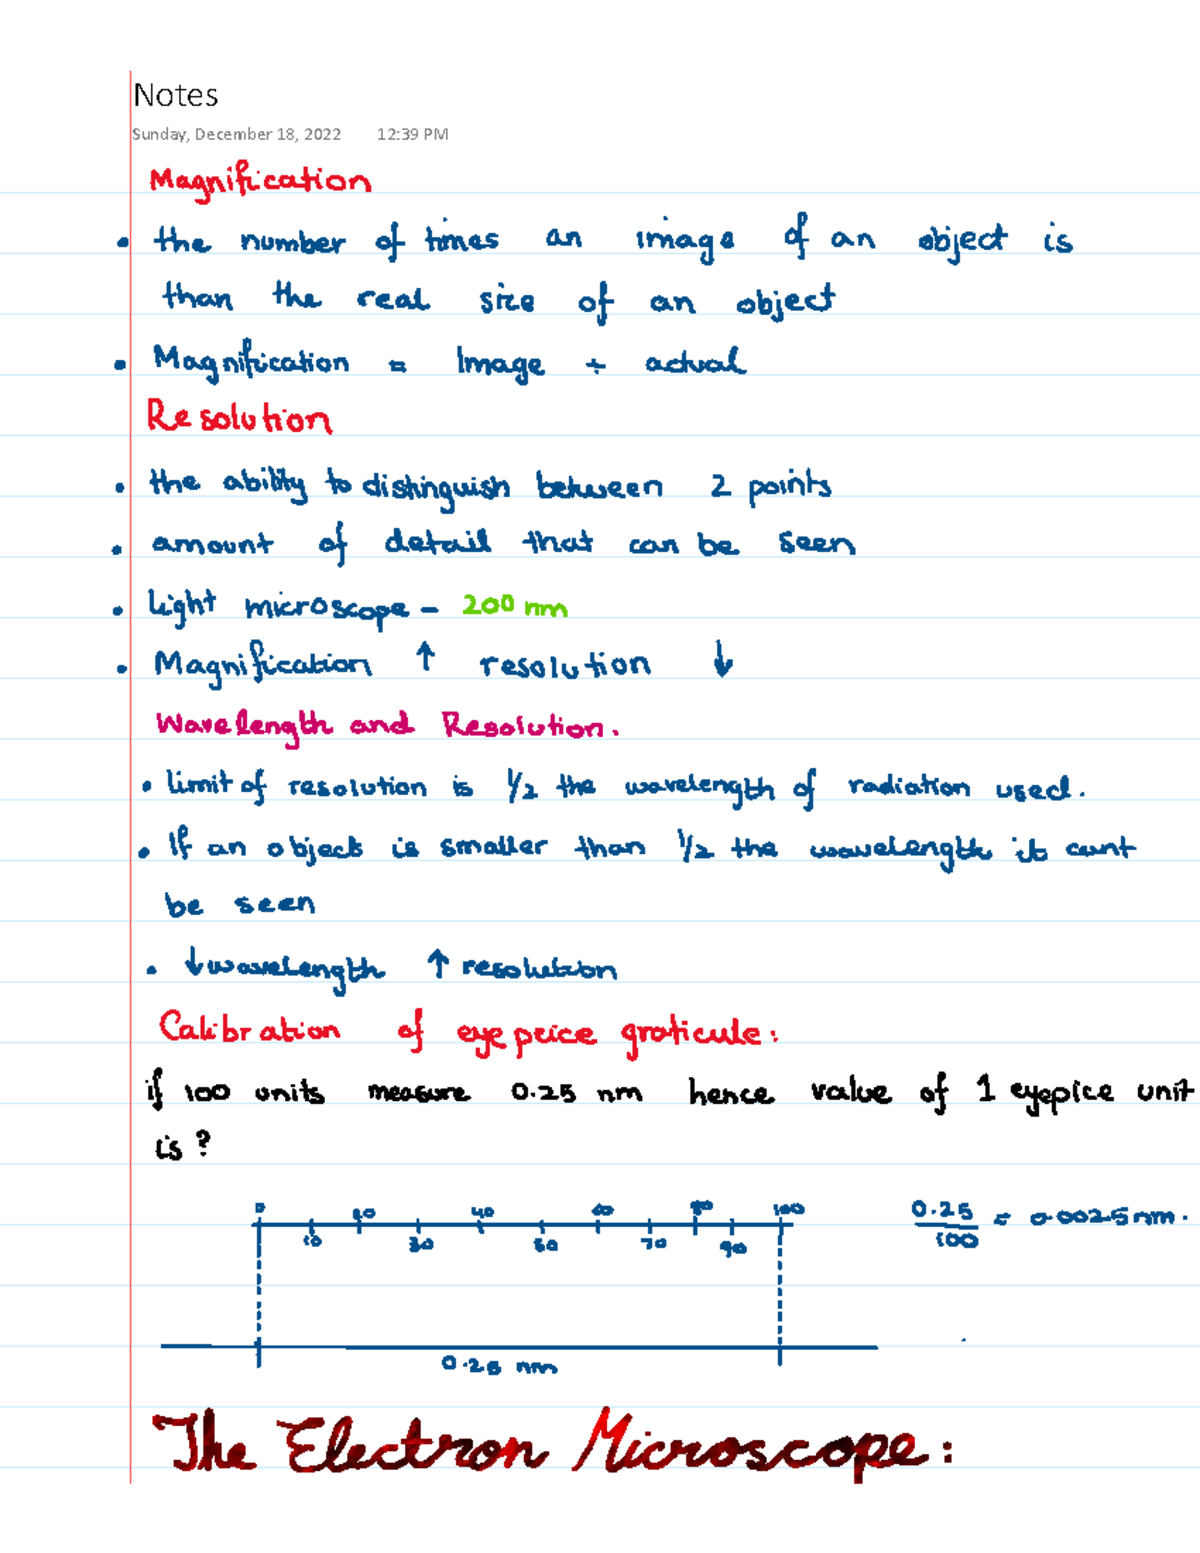 Notes
Sunday, December 18, 2022 12:39 PM
Magnification
• the number of times an image of an object is
than the real size of an object
• Magnification = Image ÷ actual
Resolution
• the ability to distinguish between 2 points
• amount of detail that can be seen
• light microscope – 200 nm
• Magnification ↑ resolution ↓
Wavelength and Resolution.
• limit of resolution is 1/2 the wavelength of radiation used.
• If an object is smaller than 1/2 the wavelength it cant
be seen
• ↓ wavelength ↑ resolution
Calibration of eyepeice graticule:
if 100 units measure 0.25 nm hence value of 1 eyepice unit
is?
0 20 40 60 80 100
10 30 50 70 90
0.25/100 = 0.0025 nm.
0.25 nm
The Electron Microscope: